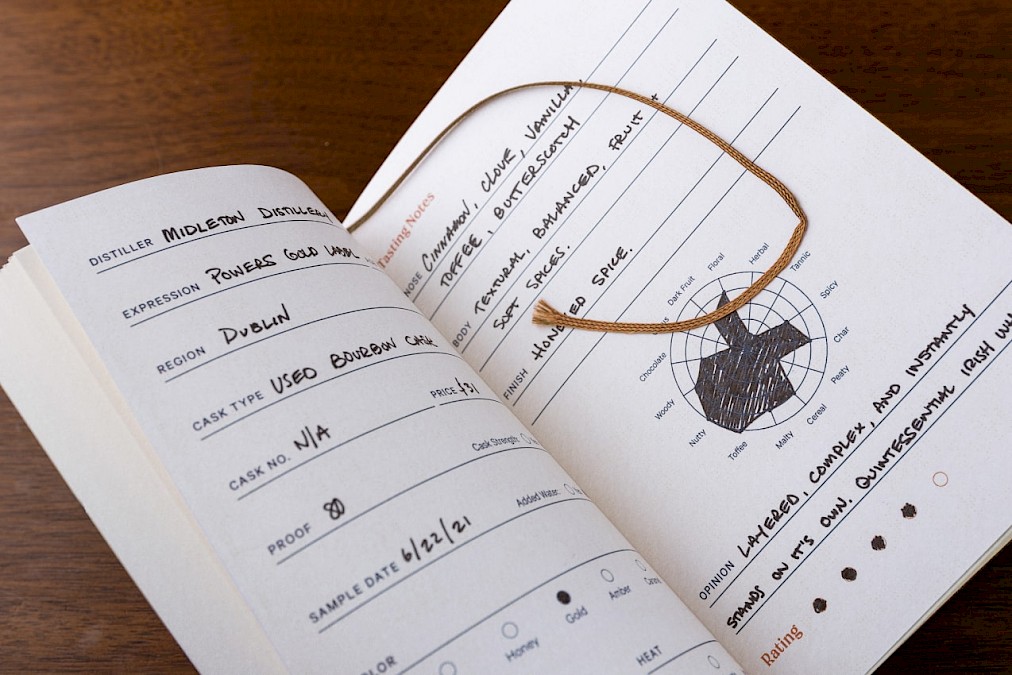 DISTILLER MIDLETON DISTILLERY
EXPRESSION POWERS GOLD LABEL
REGION DUBLIN
CASK TYPE USED BOURBON CASK
CASK NO. N/A PRICE £31
PROOF 80 Cask Strength:
SAMPLE DATE 6/22/21 Added Water:
Honey Gold Amber
HEAT
Tasting Notes
NOSE CINNAMON, CLOVE, VANILLA,
TOFFEE, BUTTERSCOTCH
BODY TEXTURAL, BALANCED, FRUIT +
SOFT SPICES.
FINISH HONEYED SPICE.
Dark Fruit
Floral
Herbal
Tannic
Spicy
Char
Peaty
Cereal
Malty
Toffee
Nutty
Woody
Chocolate
OPINION LAYERED, COMPLEX, AND INSTANTLY
STANDS ON IT'S OWN. QUINTESSENTIAL IRISH
Rating